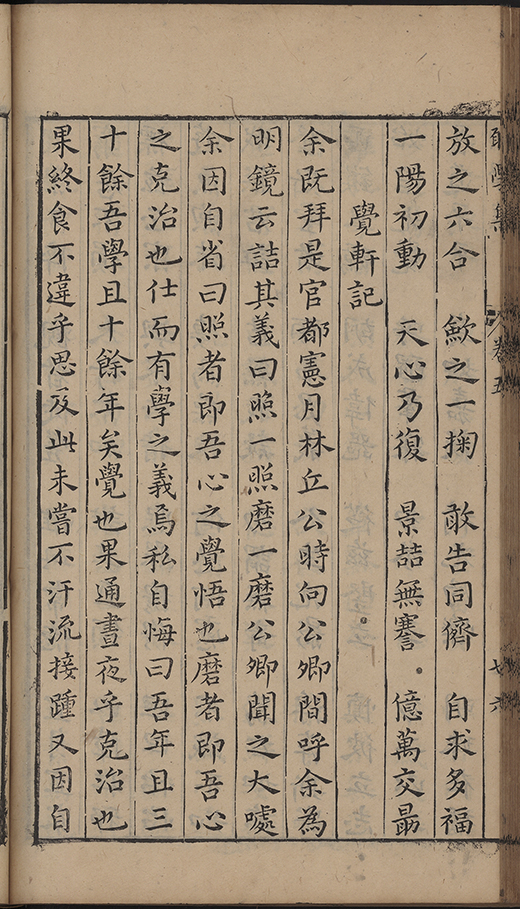 放之六合　歛之一掬　敢告同儕　自求多福
一陽初動　天心乃復　景喆無謇　億萬交最
覺軒記
余既拜是官都憲月林丘公時向公卿間呼余為
明鏡云詰其義曰照一照磨一磨公卿聞之大噱
余因自省曰照者即吾心之覺悟也磨者即吾心
之克治也仕而有學之義焉私自悔曰吾年且三
十餘吾學且十餘年矣覺也果通晝夜乎克治也
果終食不違乎思及此未嘗不汗流接踵又因自
卷五